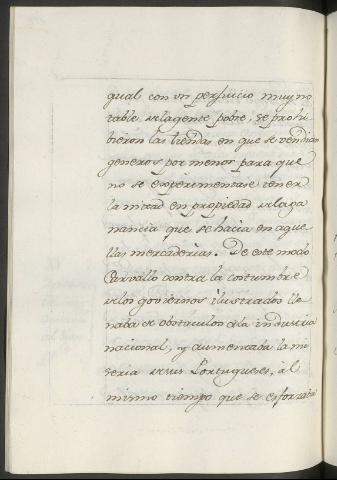 gual con un perjuicio muy no
table de la gente pobre, se prohi
bieron las tiendas en que se vendian
generos por menor para que
no se experimentase tener
la mitad en propiedad de la ga
nancia que se hacia en aque
llas mercaderias. De este modo
Carvallo contra la costumbre
de los goviernos ilustrados lle
naba de obstaculos a la industria
nacional, y aumentaba la mi
seria de sus Portugueses, al
mismo tiempo que se esforzaba